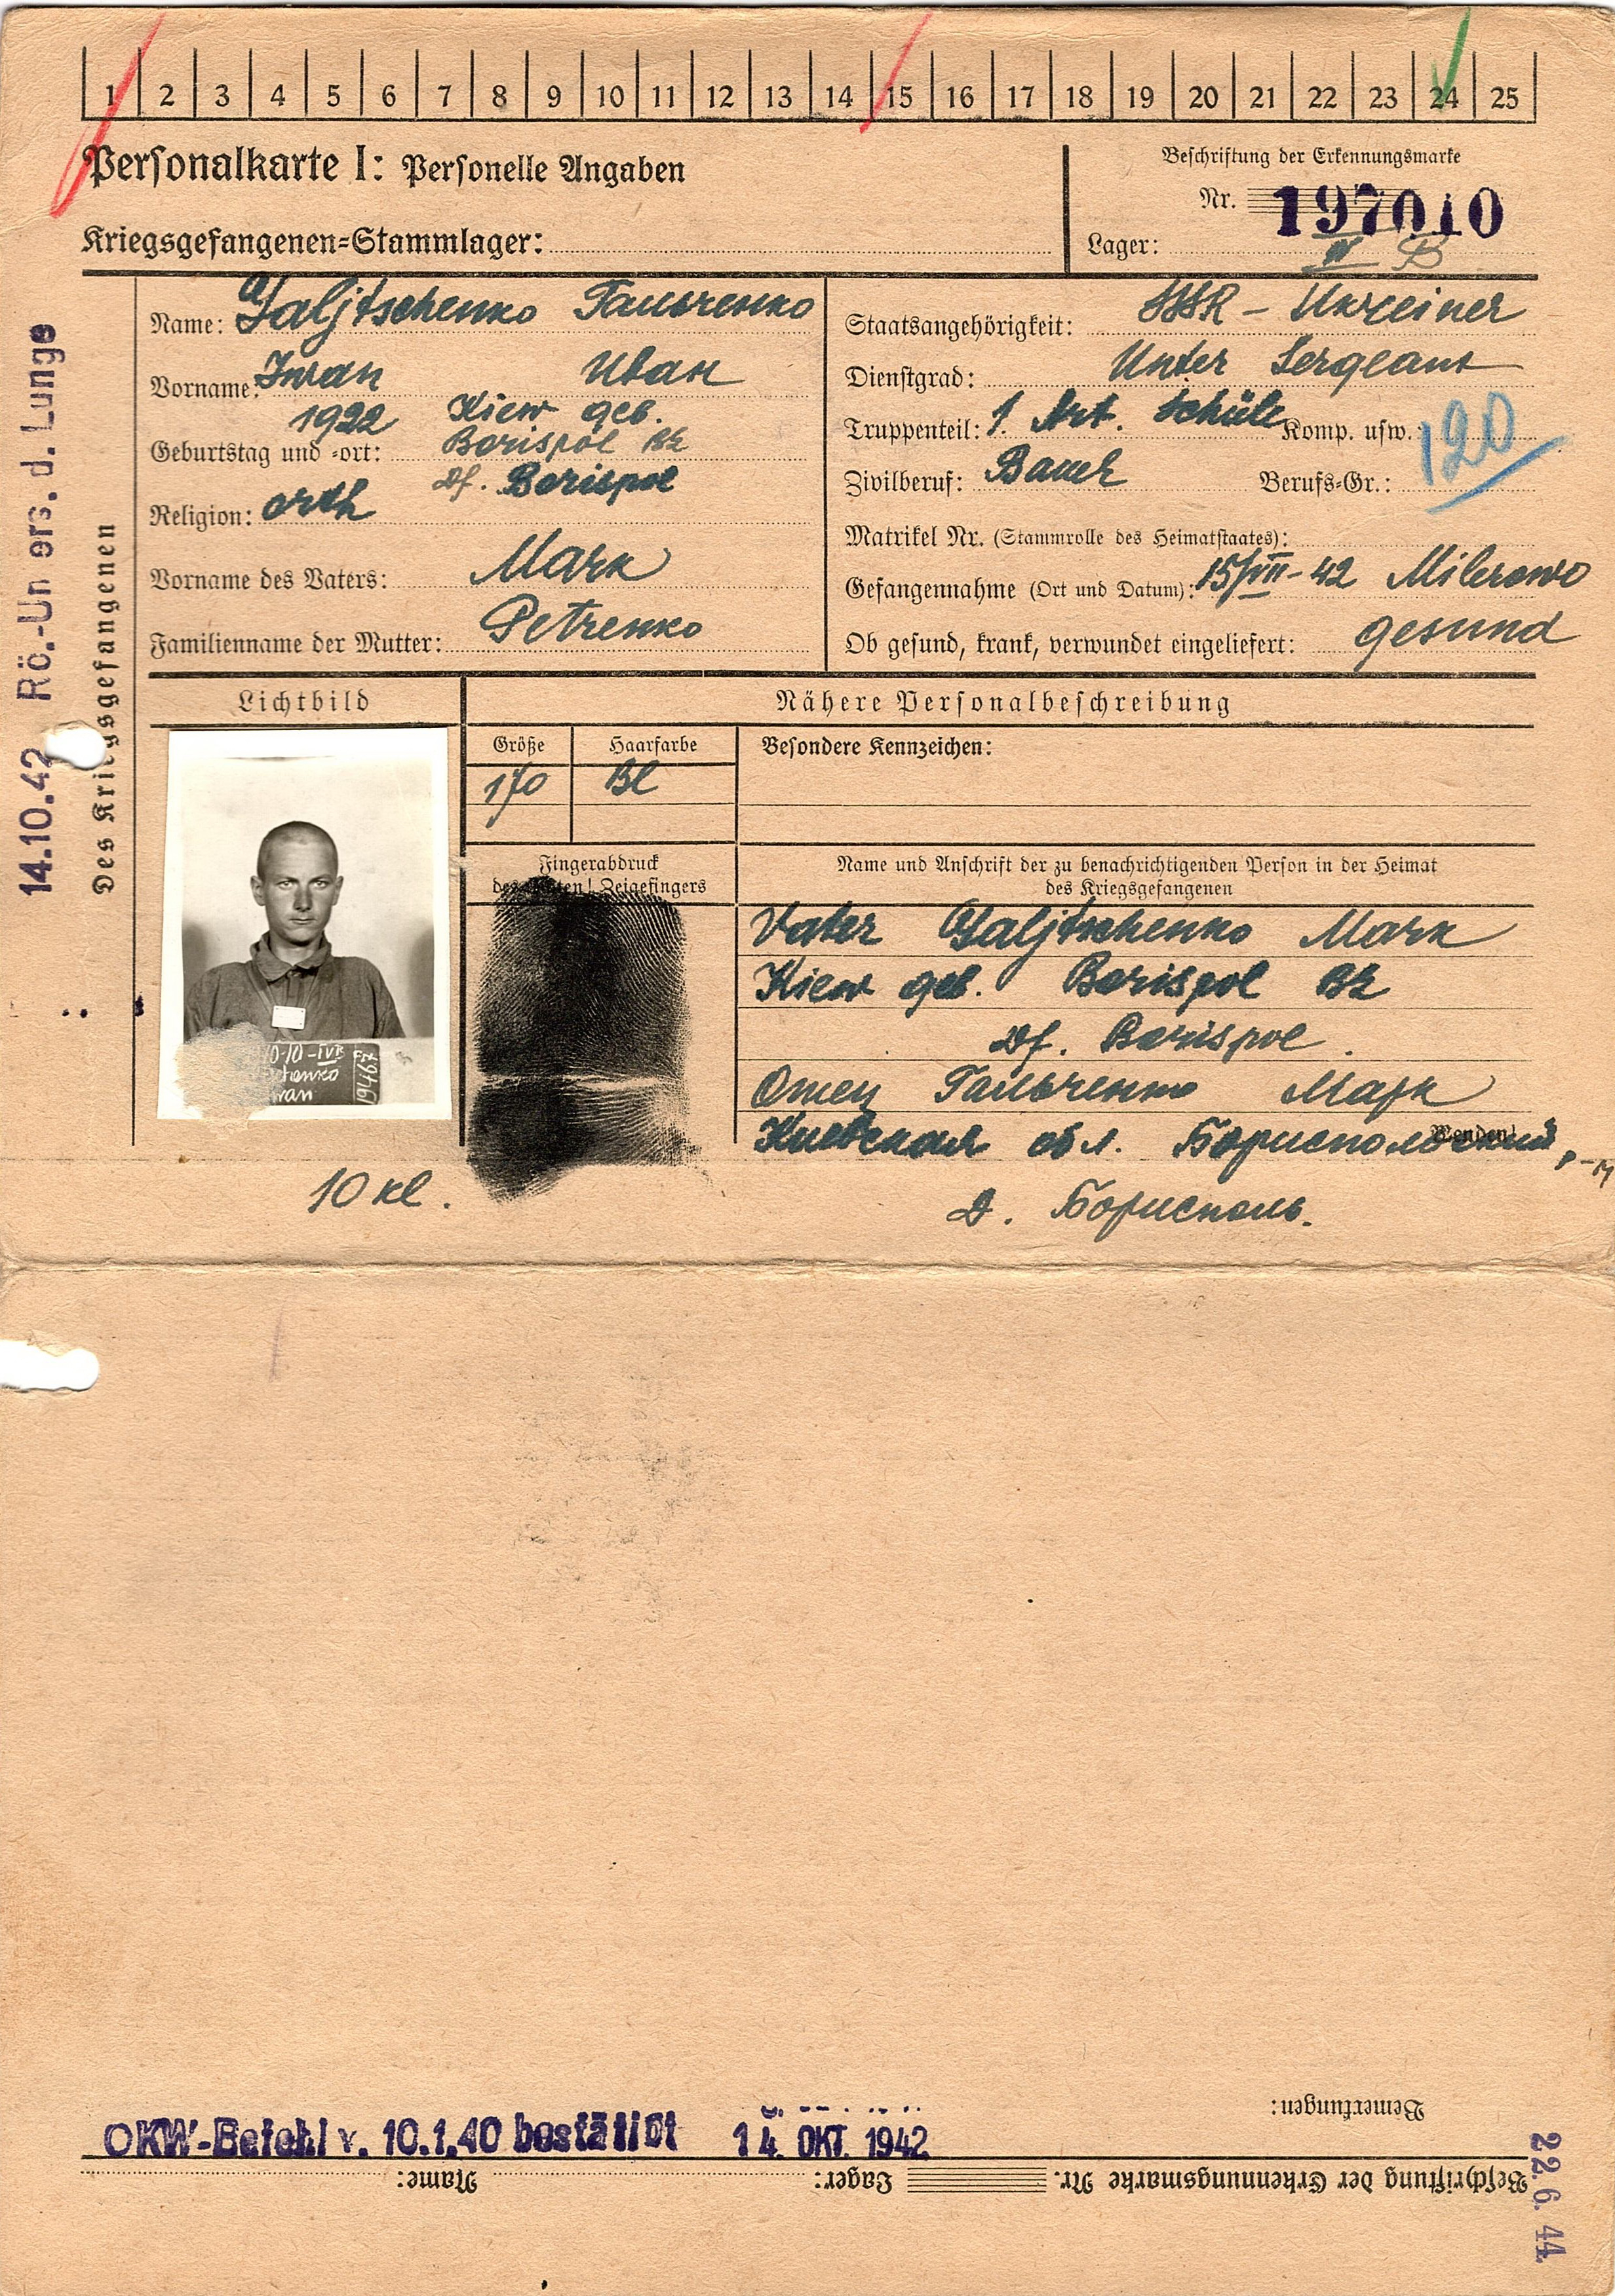 1 2 3 4 5 6 7 8 9 10 11 12 13 14 15 16 17 18 19 20 21 22 23 24 25
Personalkarte I: Personelle Angaben
Kriegsgefangenen=Stammlager:
Beschriftung der Erkennungsmarke
Nr. 197010
Lager: IV B
14.10.42 Rö.-Un ers. d. Lunge
Des Kriegsgefangenen
Name: Galjtschenko Гальченко
Vorname: Iwan Иван
1922 Kiew geb.
Geburtstag und =ort: Borispol Bz
Df. Borispol
Religion: orth
Vorname des Vaters: Mark
Familienname der Mutter: Petrenko
Staatsangehörigkeit: SSSR - Ukreiner
Dienstgrad: Unter Sergeant
Truppenteil: 1. Art. Schüle Komp. usw.: 120
Zivilberuf: Bauer Berufs=Gr.:
Matrikel Nr. (Stammrolle des Heimatstaates):
Gefangennahme (Ort und Datum): 15/VIII-42 Milerowo
Ob gesund, krank, verwundet eingeliefert: gesund
Lichtbild
Nähere Personalbeschreibung
Größe Haarfarbe Besondere Kennzeichen:
170 Bl
Fingerabdruck
des rechten! Zeigefingers
Name und Anschrift der zu benachrichtigenden Person in der Heimat
des Kriegsgefangenen
Vater Galjtschenko Mark
Kiew geb. Borispol Bz
Df. Borispol.
Отец Гальченко Марк
Киевская обл. Борисполський р-н
Wenden!
Д. Борисполь.
10 kl.
Bemerkungen:
OKW-Befehl v. 10.1.40 bestätigt 14. OKT. 1942
Beschriftung der Erkennungsmarke Nr. Lager: Name:
22. 6. 44.